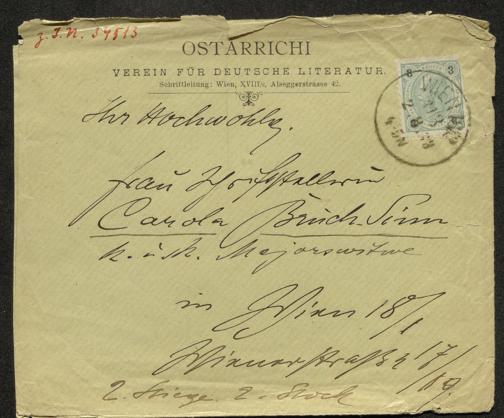 z. I. N. 54813
OSTARRICHI
VEREIN FÜR DEUTSCHE LITERATUR.
Schriftleitung: Wien, XVIII/1, Alseggerstrasse 42.
8 3
WIEN
Ihr Hochwohlg.
Frau Schriftstellerin
Carola Bruch-Sinn
k. u. k. Majorswitwe
in Wien 18/1
Wienerstraße 17/
2. Stiege 2. Stock